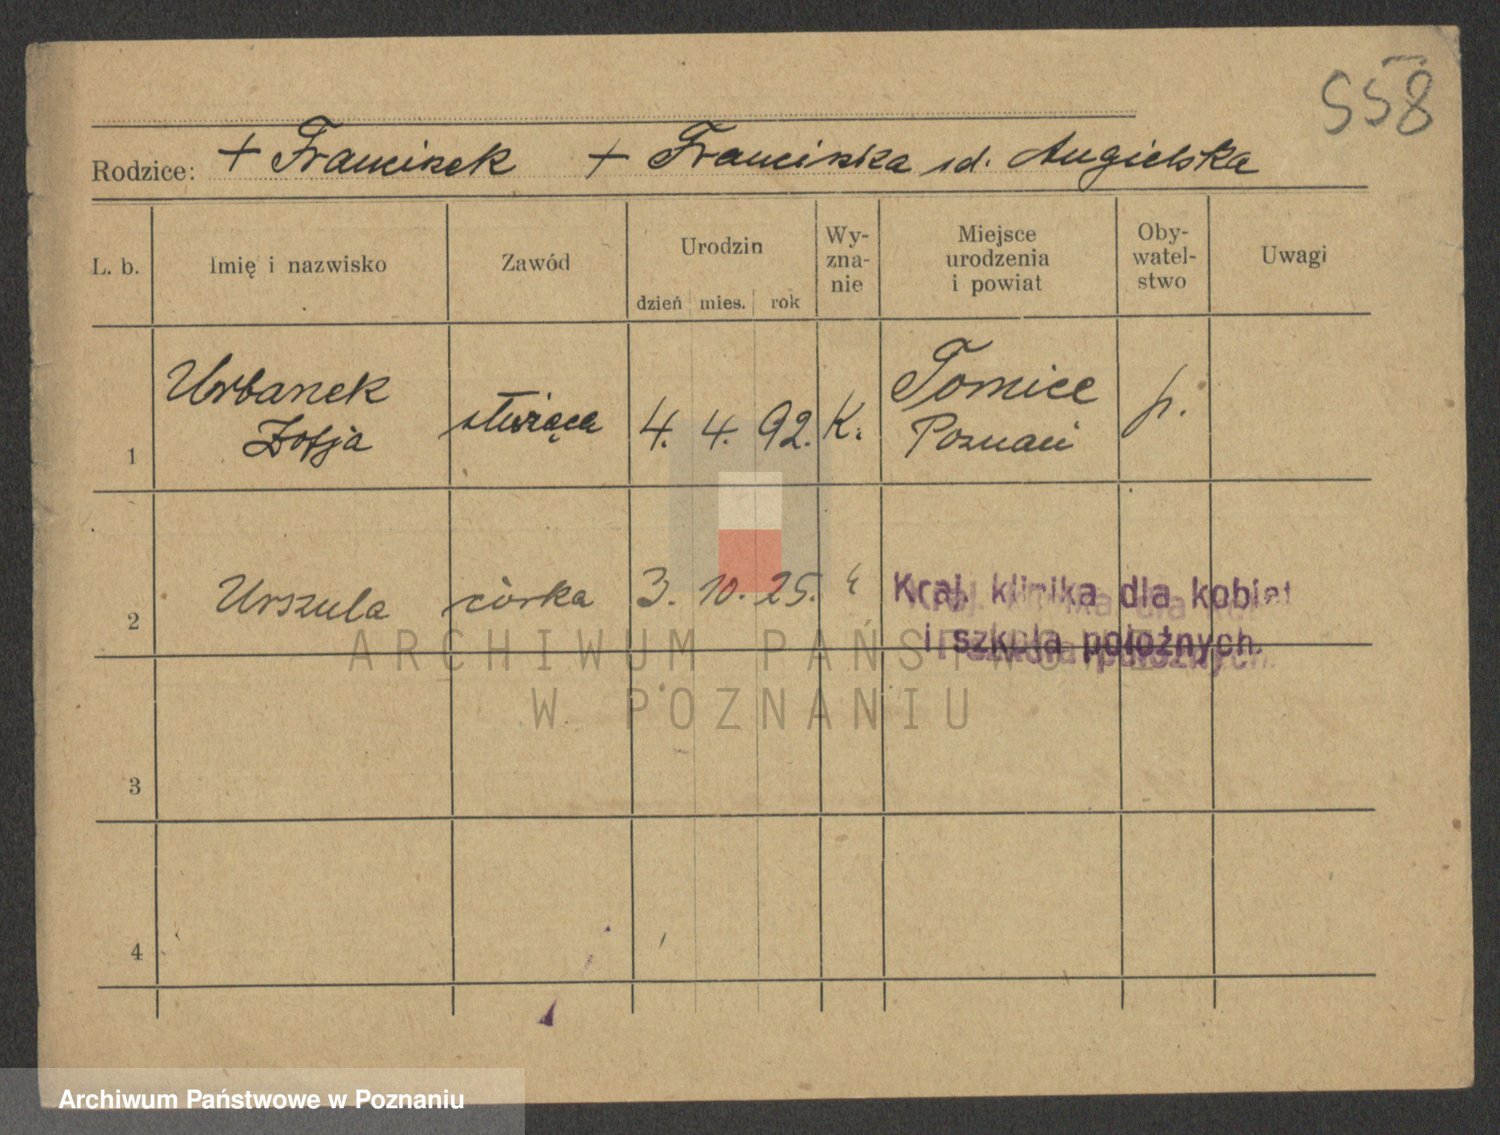 558
Rodzice: + Franciszek + Franciszka zd. Angielska
L. b. Imię i nazwisko Zawód Urodzin dzień mies. rok Wy-zna-nie Miejsce urodzenia i powiat Oby-watel-stwo Uwagi
1 Urbanek Zofja służąca 4. 4. 92. K. Tomice Poznań p.
2 Urszula córka 3. 10. 25. Kraj. klinika dla kobiet
i szkoła położnych.
3
4
ARCHIWUM PAŃSTWOWE
W POZNANIU
Archiwum Państwowe w Poznaniu